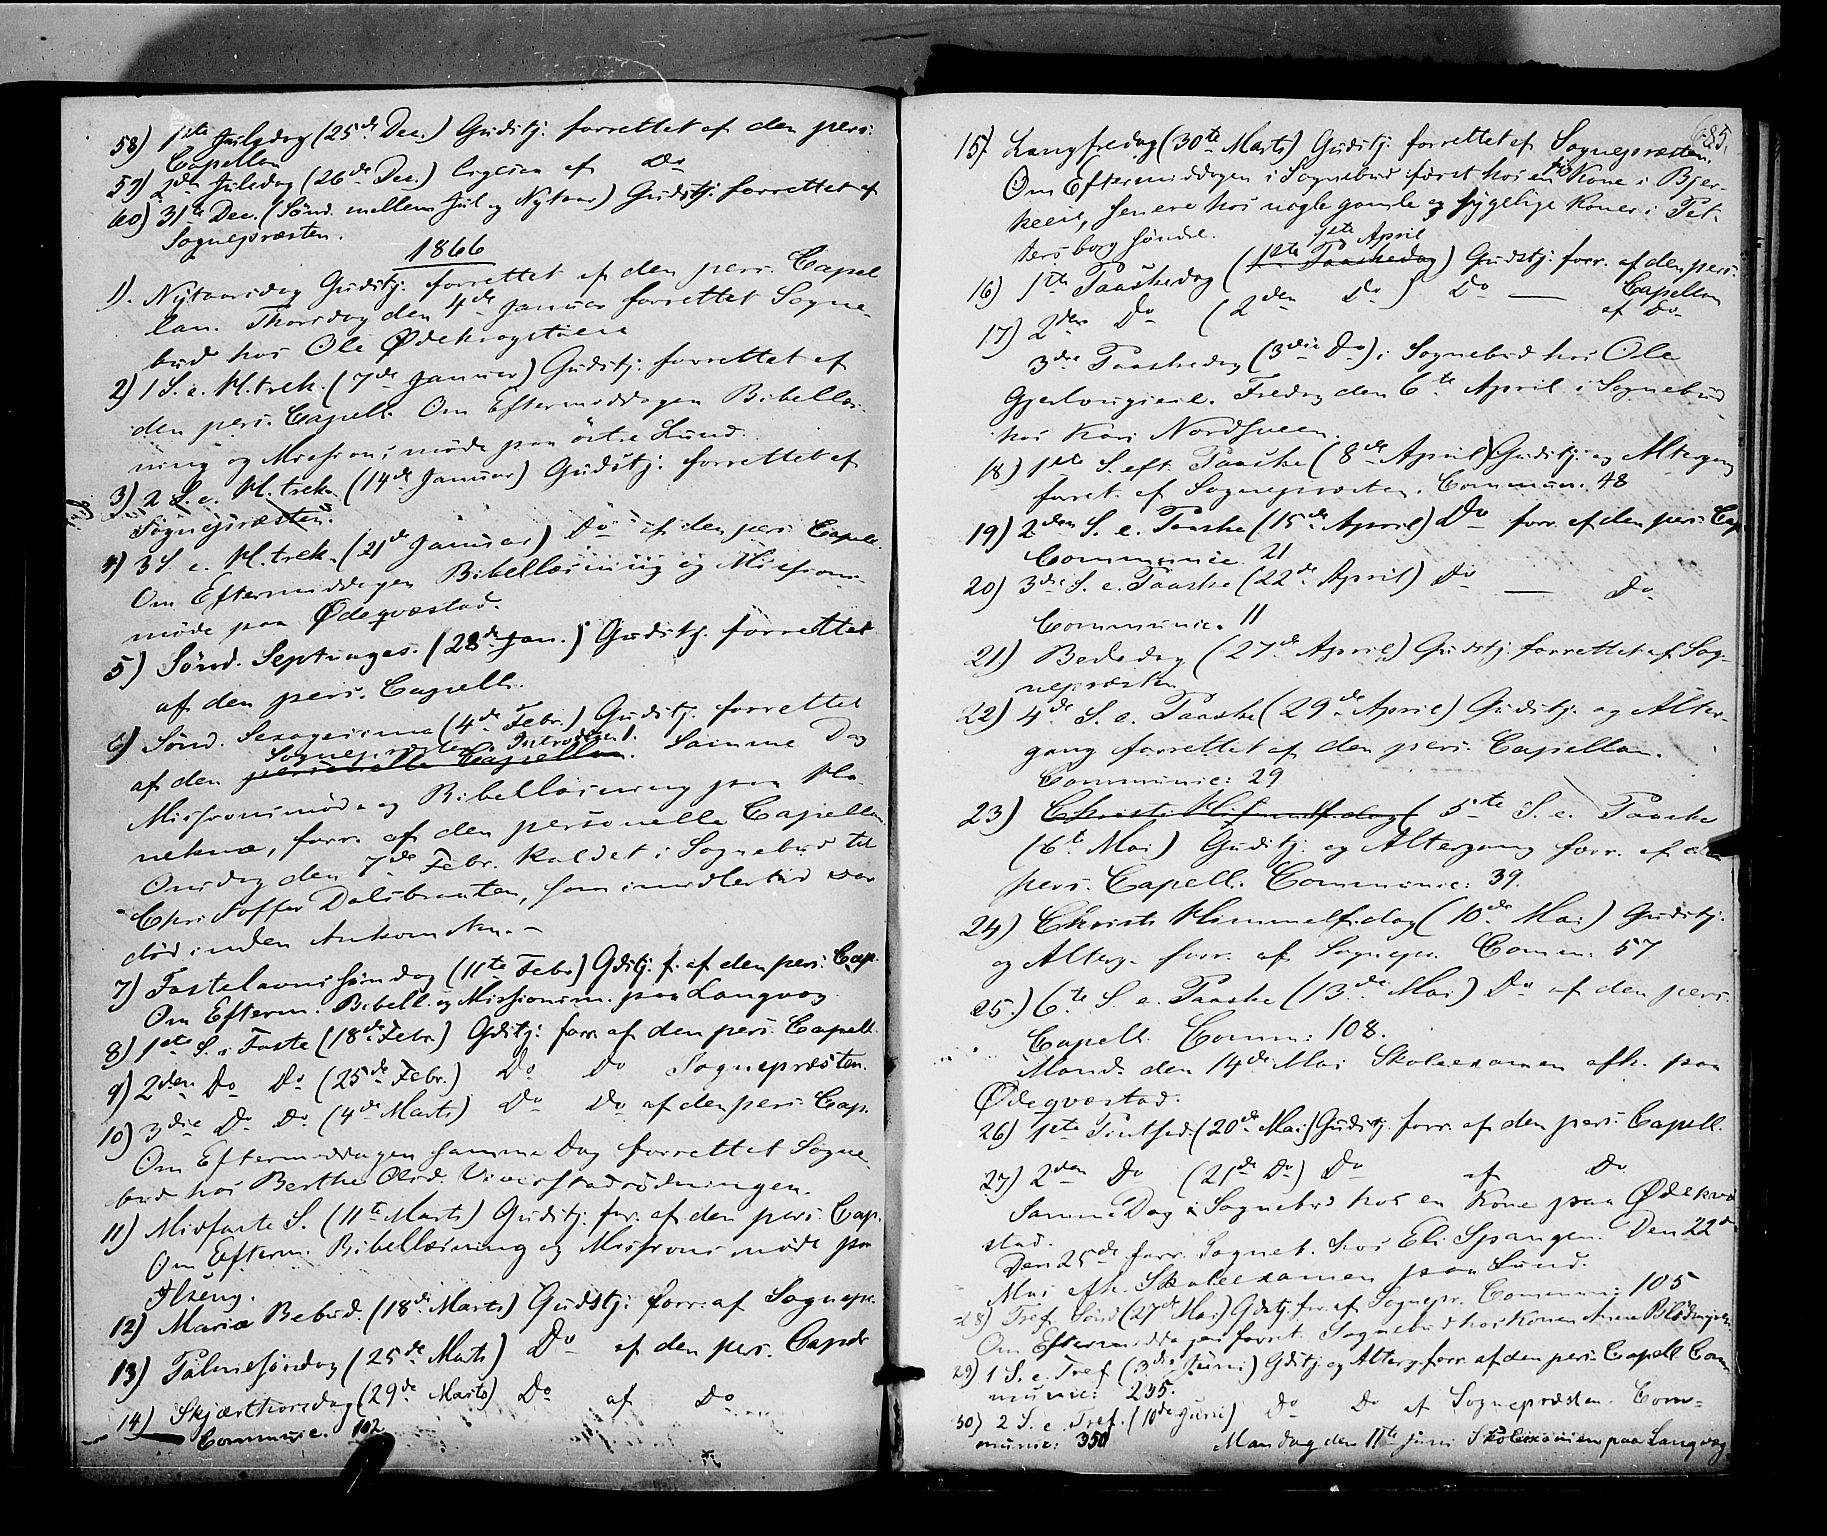 58) 1ste Juledag (25de Dec.) Gudstj. forrettet af den pers.
Capellan
59) 2den Juledag (26de Dec.) ligesaa af Do
60) 31te Dec. (Sönd. mellem Jul og Nytaar) Gudstj. forrettet af
Sognepræsten.
1866
1). Nytaarsdag Gudstj. forrettet af den pers. Capel
lan. Thorsdag den 4de Januar forrettet Sogne-
bud hos Ole Ødekragstuen
2) 1 S. e. H.trek. (7de Januar) Gudstj. forrettet af
den pers. Capell. Om Eftermiddagen Bibellæs-
ning og Missionsmøde paa östre Lund.
3) 2 S. e. H.trek. (14de Januar) Gudstj. forrettet af
Sognepræsten.
4) 3 S. e. H.trek. (21de Januar) Do af den pers. Capell.
Om Eftermiddagen Bibellæsning og Missions-
møde paa Ødeqvæstad.
5) Sönd. Septuages. (28de Jan.) Gudstj. forrettet
af den pers. Capell.
6) Sönd. Sexagesima (4de Febr.) Gudstj. forrettet
Sognepræsten
af den personelle Capellan. Samme Dag
Missionsmøde og Bibellæsning paa
forr. af den personelle Capellan.
Onsdag den 7de Febr. kaldet i Sognebud til
Christoffer Dalsbraaten, som imidlertid var
død inden Ankomsten.
7) Fastelavnssöndag (11te Febr) Gdstj. f. af den pers. Cap.
Om Efterm. Bibell. og Missionsm. paa Langvag
8) 1ste S. i Faste (18de Febr) Gdstj. forr. af den pers. Capell.
9) 2den Do Do (25de Febr.) Do Do Sognepræsten.
10) 3die Do Do (4de Marts) Do Do af den pers. Cap.
Om Eftermiddagen samme Dag forrettet Sogne-
bud hos Berthe Olsd. Viverstadrödningen.
11) Midfaste S. (11te Marts) Gudstj. for. af den pers. Cap.
Om Efterm. Bibellæsning og Missionsmøde paa
Ilseng.
12) Mariæ Bebud. (18de Marts) Gudstj. forr. af Sognepr.
13) Palmesöndag (25de Marts) Do af den pers. Capell
14) Skjærthorsdag (29de Marts) Do af Do
Communic. 102
685.
15). Langfredag (30te Marts) Gudstj. forrettet af Sognepræsten.
Om Eftermiddagen i Sognebud först hos en Kone i Bjer-
keeie, senere hos nogle gamle og sygelige Koner i Pet-
tersborg söndre.
1ste April
16) 1ste Paaskedag (1ste Paaskedag) Gudstj. forr. af den pers.
Capellan
17) 2den Do (2den Do) Do — af Do
3die Paaskedag (3die Do) i Sognebud hos Ole
Fredag den 6te April i Sognebud
hos Kari Nordsveen.
18) 1ste S. eft. Paaske (8de April) Gudstj. og Altergang
forret. af Sognepræsten. Commun. 48
19) 2den S. e. Paaske (15de April) Do forr. af den pers. Cap.
Communic. 21
20) 3die S. e. Paaske (22de April) Do — Do
Communic. 11
21) Bededag (27de April) Gudstj. forrettet af Sog-
nepræsten
22) 4de S. e. Paaske (29de April) Gudstj. og Alter-
gang forrettet af den pers. Capellan.
Communic: 29
23) Christi Himmelf.dag ( 5te S. e. Paaske
(6te Mai) Gudstj. og Altergang forr. af den
pers. Capell. Communic: 39.
24) Christi Himmelf.dag (10de Mai) Gudstj.
og Alterg. forr. af Sognepr. Comm: 57
25.) 6te S. e. Paaske (13de Mai) Do af den pers.
Capell. Comm: 108.
Mand. den 14de Mai Skoleexamen afh. paa
Ødeqvæstad.
26) 1ste Pintsed. (20de Mai) Gudstj. forr. af den pers. Capell.
27) 2den Do (21de Do) Do af Do
Samme Dag i Sognebud hos en Kone paa Ødekvæ
stad.
Den 25de forr. Sogneb. hos Eli Spangen. Den 22de
Mai afh. Skoleexamen paa Lund.
28) Tref. Sönd (27de Mai) Gdstj. for. af Sognepr. Commun: 105
Om Eftermiddagen forret. Sognebud hos Konen Anne
29) 1 S. e. Tref. (3die Juni) Gdstj. og Alterg. forr. af den pers. Capell. Com-
munic: 235.
30) 2 S. e. Tref. (10de Juni) Do Do af Sognepræsten. Com-
munic: 350 Mandag den 11te Juni Skolexamen paa Langvag